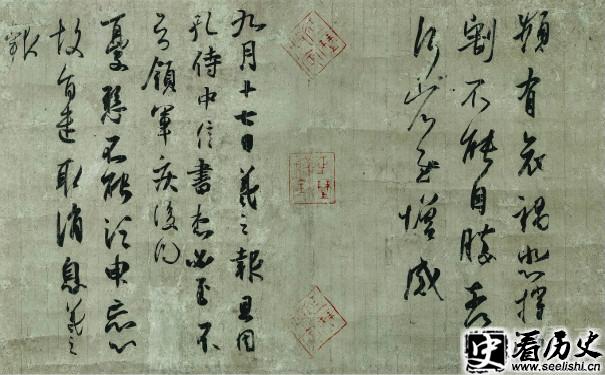 頻有哀禍悲摧
割不能自勝奈
何省慰增感
九月十七日羲之報且因
孔侍中信書想必至不
知領軍疾後問
憂懸不能須臾忘心
故旨遣取消息羲之
報
史 看历史
www.seelishi.cn